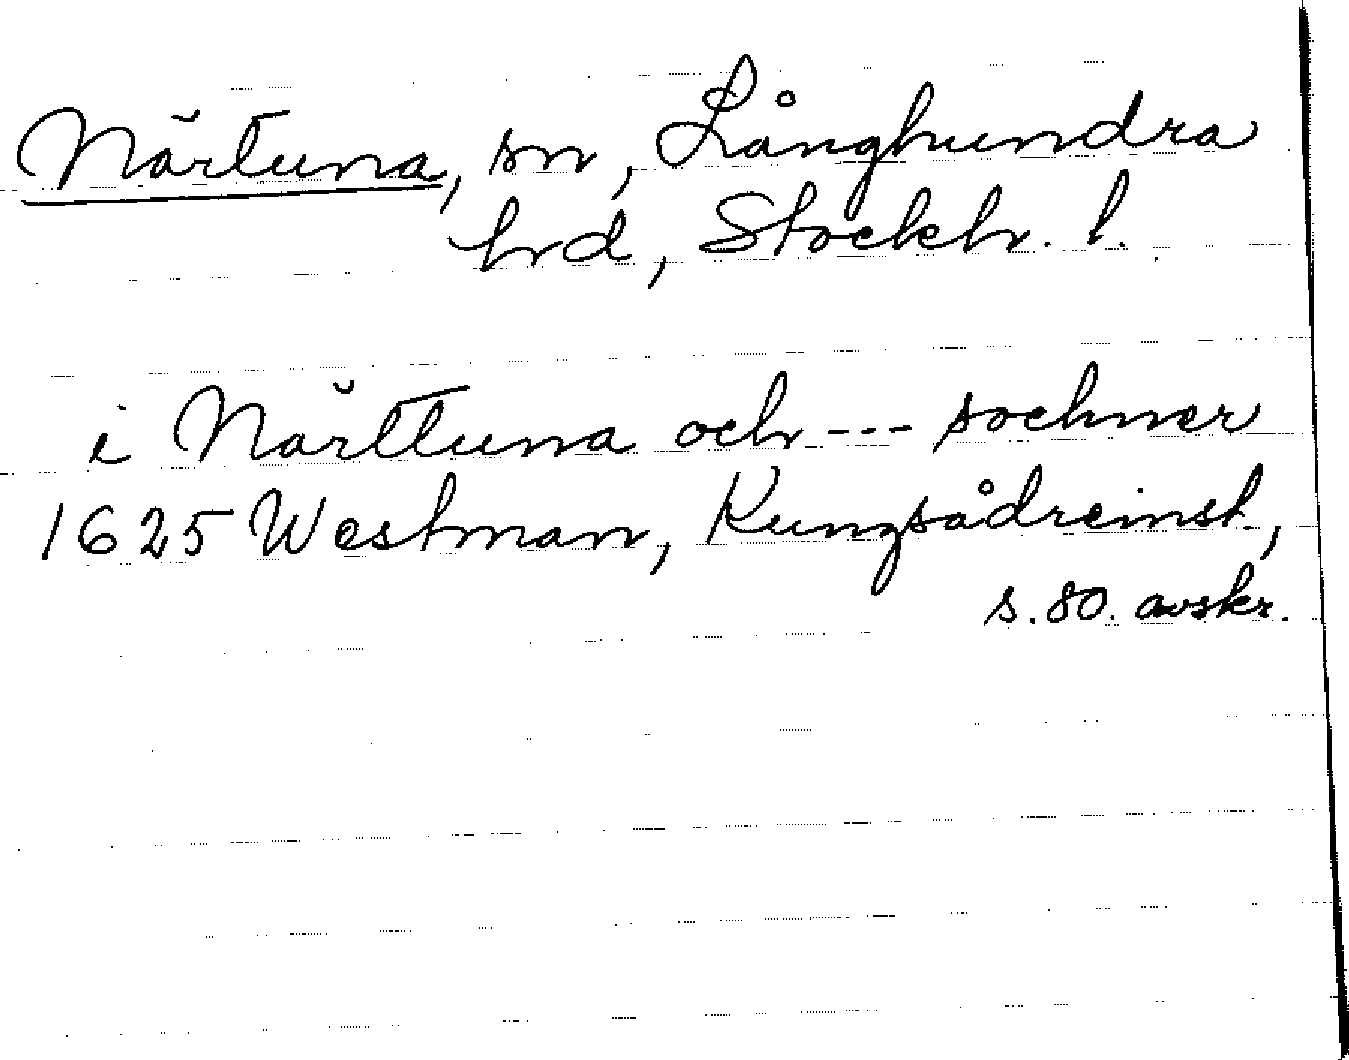 Närtuna, sn, Långhundra
hrd, Stockh. l.
i Närttuna och --- sochner
1625 Westman, Kungsådreinst.,
s. 80. avskr.